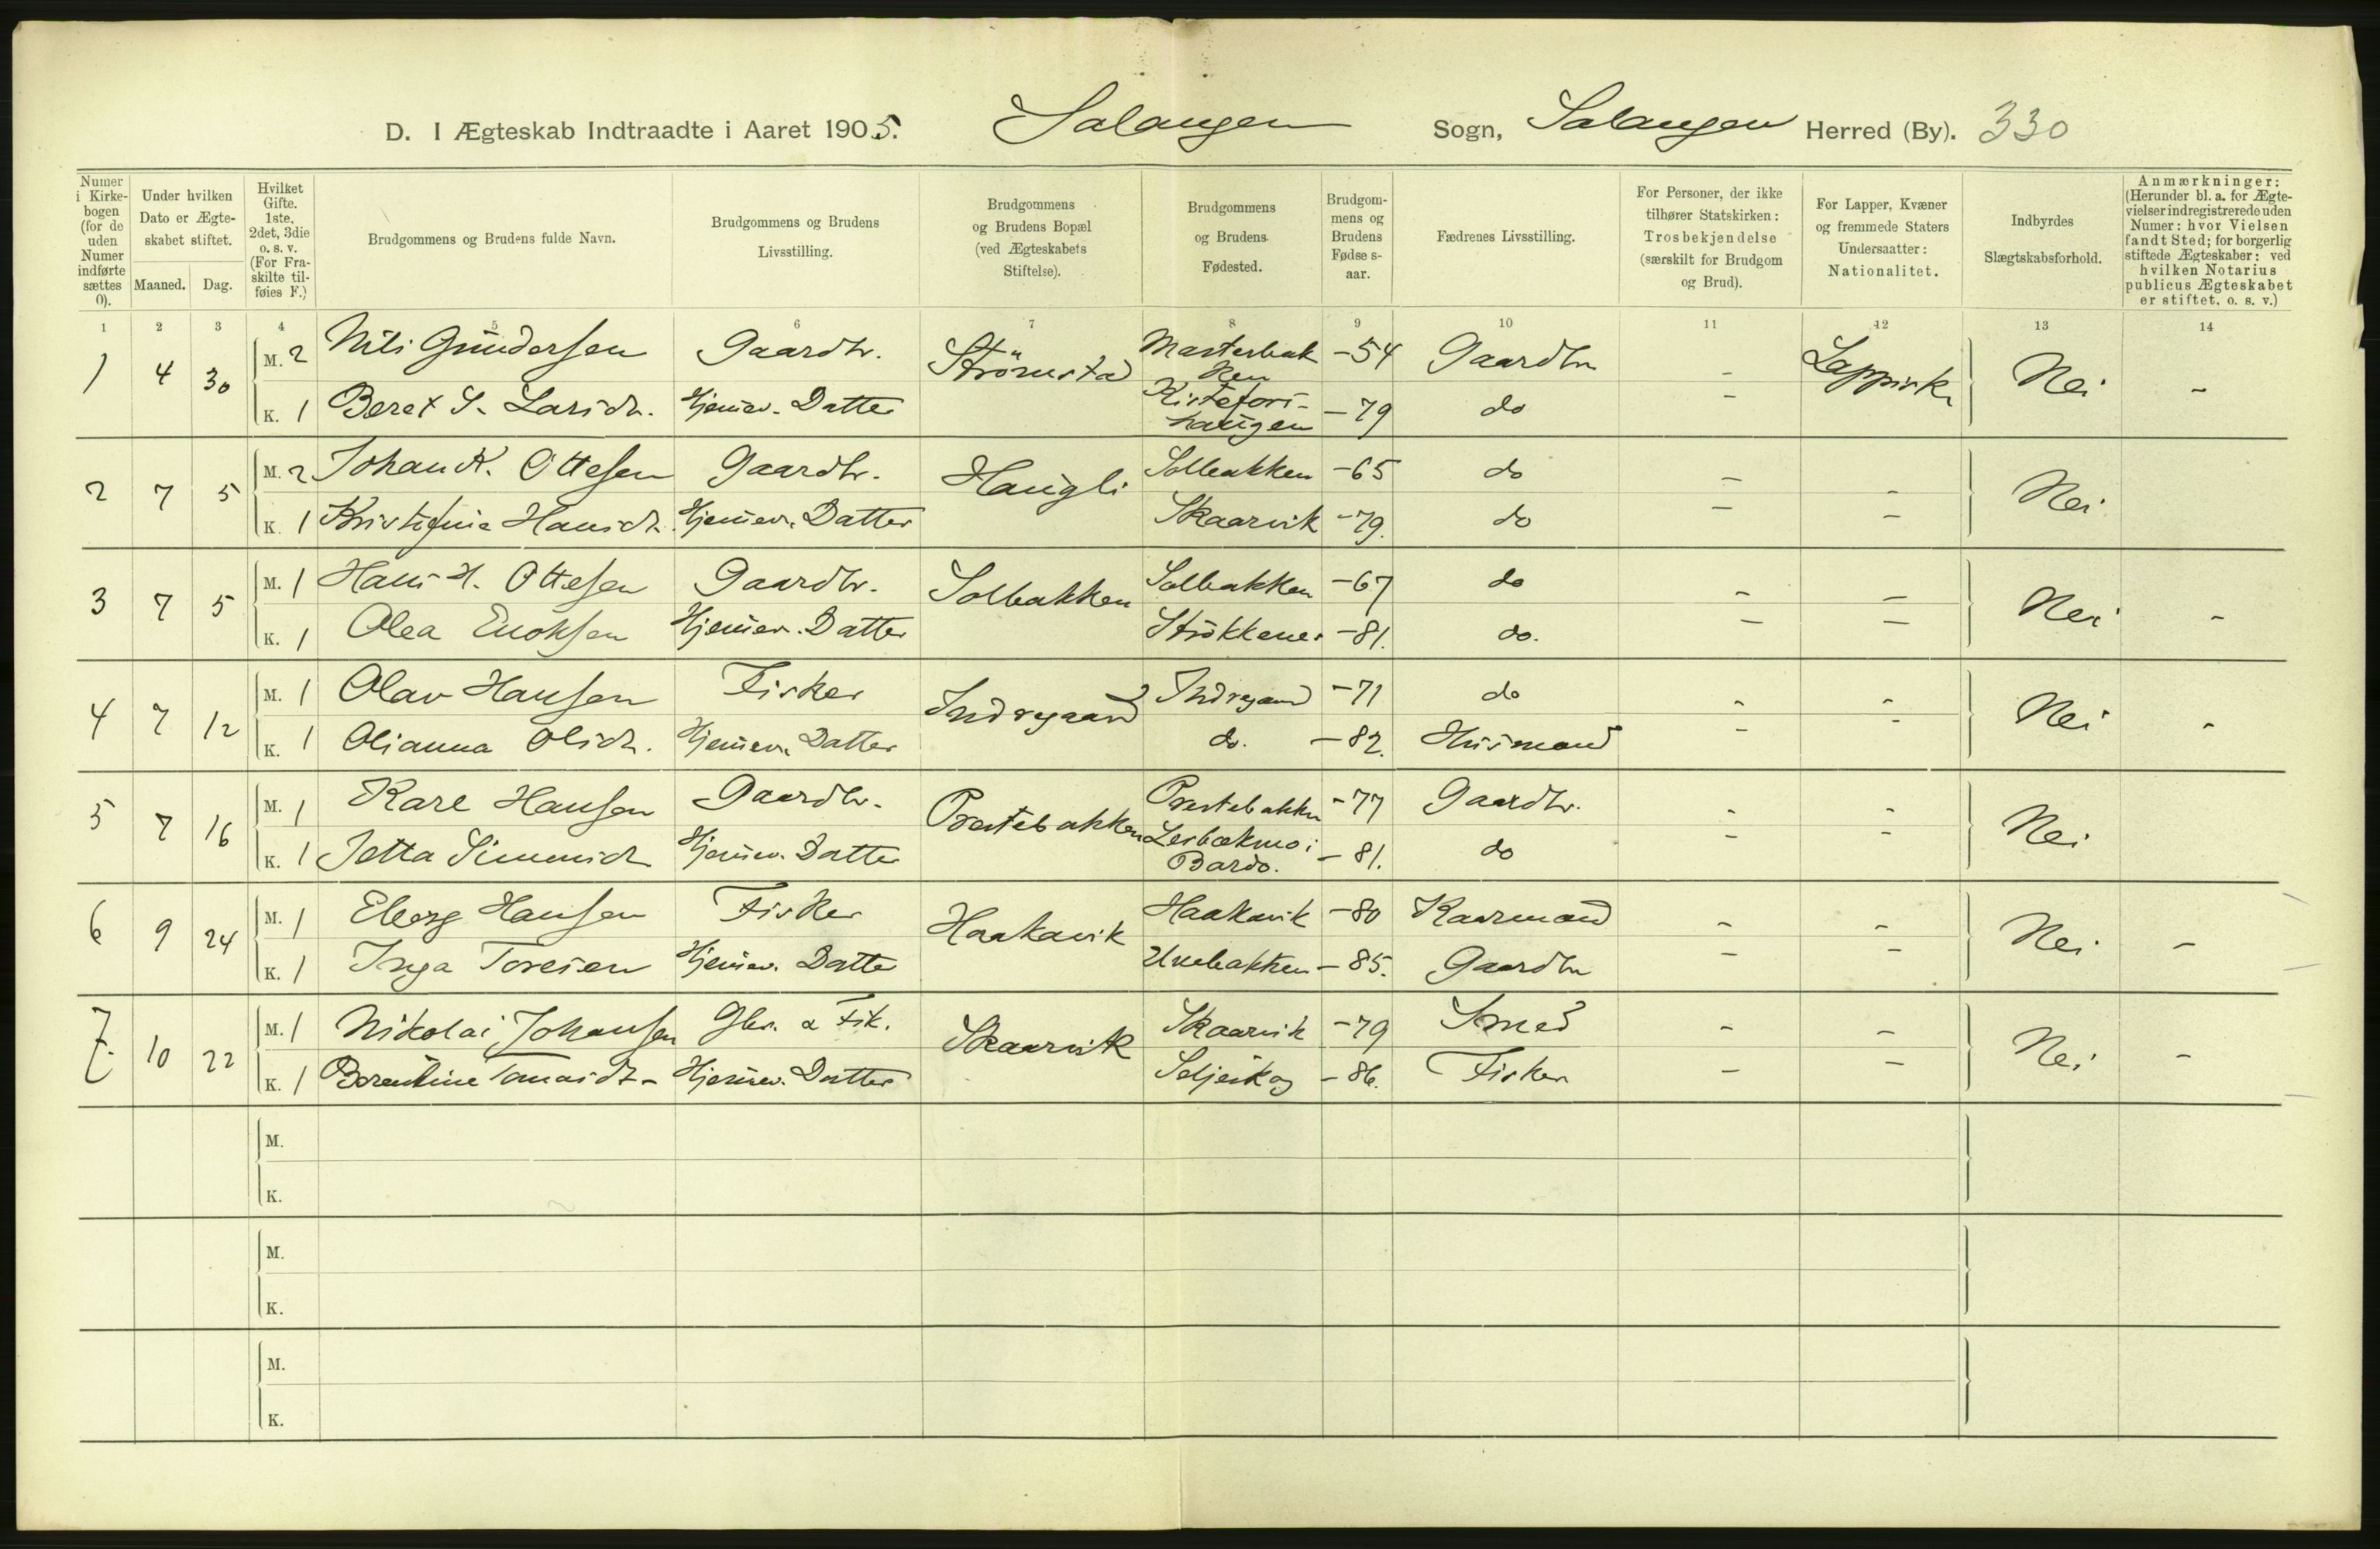 D. I Ægteskab Indtraadte i Aaret 1905. Salangen Sogn, Salangen Herred (By). 330
Numer i Kirkebogen (for de uden Numer indførte sættes 0).
Under hvilken Dato er Ægteskabet stiftet.
Maaned. Dag.
Hvilket Gifte. 1ste, 2det, 3die o. s. v. (For Fraskilte tilføies F.)
Brudgommens og Brudens fulde Navn.
Brudgommens og Brudens Livsstilling.
Brudgommens og Brudens Bopæl (ved Ægteskabets Stiftelse).
Brudgommens og Brudens Fødested.
Brudgommens og Brudens Fødselsaar.
Fædrenes Livsstilling.
For Personer, der ikke tilhører Statskirken: Trosbekjendelse (særskilt for Brudgom og Brud).
For Lapper, Kvæner og fremmede Staters Undersaatter: Nationalitet.
Indbyrdes Slægtskabsforhold.
Anmærkninger: (Herunder bl. a. for Ægtevielser indregistrerede uden Numer: hvor Vielsen fandt Sted; for borgerlig stiftede Ægteskaber: ved hvilken Notarius publicus Ægteskabet er stiftet, o. s. v.)
1 2 3 4 5 6 7 8 9 10 11 12 13 14
1 4 30 M. 2 Nils Gundersen Gaardbr. Strömstad Masterbakken -54 Gaardbr - Lappisk Nei -
K. 1 Beret S. Larsdr. Hjemev. Datter Kistefoshaugen -79 do -
2 7 5 M. 2 Johan K. Ottesen Gaardbr. Haugli Solbakken -65 do - - Nei
K. 1 Kristofine Hansdr. Hjemev. Datter Skaarvik -79. do - -
3 7 5 M. 1 Hans H. Ottesen Gaardbr. Solbakken Solbakken -67 do - - Nei -
K. 1 Olea Enoksen Hjemev. Datter Strokkenes -81. do. - -
4 7 12 M. 1 Olav Hansen Fisker Indregaard Indregaard -71 do - - Nei -
K. 1 Olianna Olsdr. Hjemev. Datter do. -82. Husmand - -
5 7 16 M. 1 Karl Hansen Gaardbr. Prestebakken Prestebakken -77 Gaardbr. - - Nei
K. 1 Jetta Simonsdr Hjemev. Datter i Bardo. -81. do - -
6 9 24 M. 1 Eberg Hansen Fisker Haakavik Haakavik -80 Kaarmand - - Nei -
K. 1 Inga Toresen Hjemev. Datter -85. Gaardbr - -
7. 10 22 M. 1 Nikolai Johansen Gbr. & Fisk. Skaarvik Skaarvik -79 Smed - - Nei -
K. 1 Berentine Tomasdr. Hjemev. Datter Seljeskog -86. Fisker - -
M.
K.
M.
K.
M.
K.